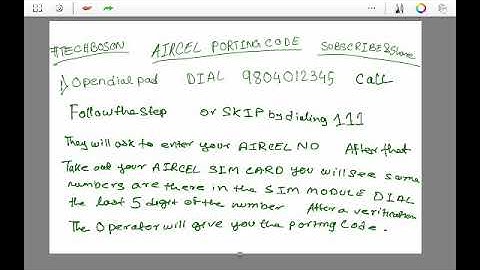 #TECHBOSON AIRCEL PORTING CODE SUBSCRIBE & Share
1) Opendial pad DIAL 9804012345 Call
Follow the step or SKIP by dialing 111
They will ask to enter your AIRCEL NO After that
Take out your AIRCEL SIM CARD you will see some
numbers are there in the SIM MODULE DIAL
the last 5 digit of the number After a verification
The Operator will give you the Porting Code.